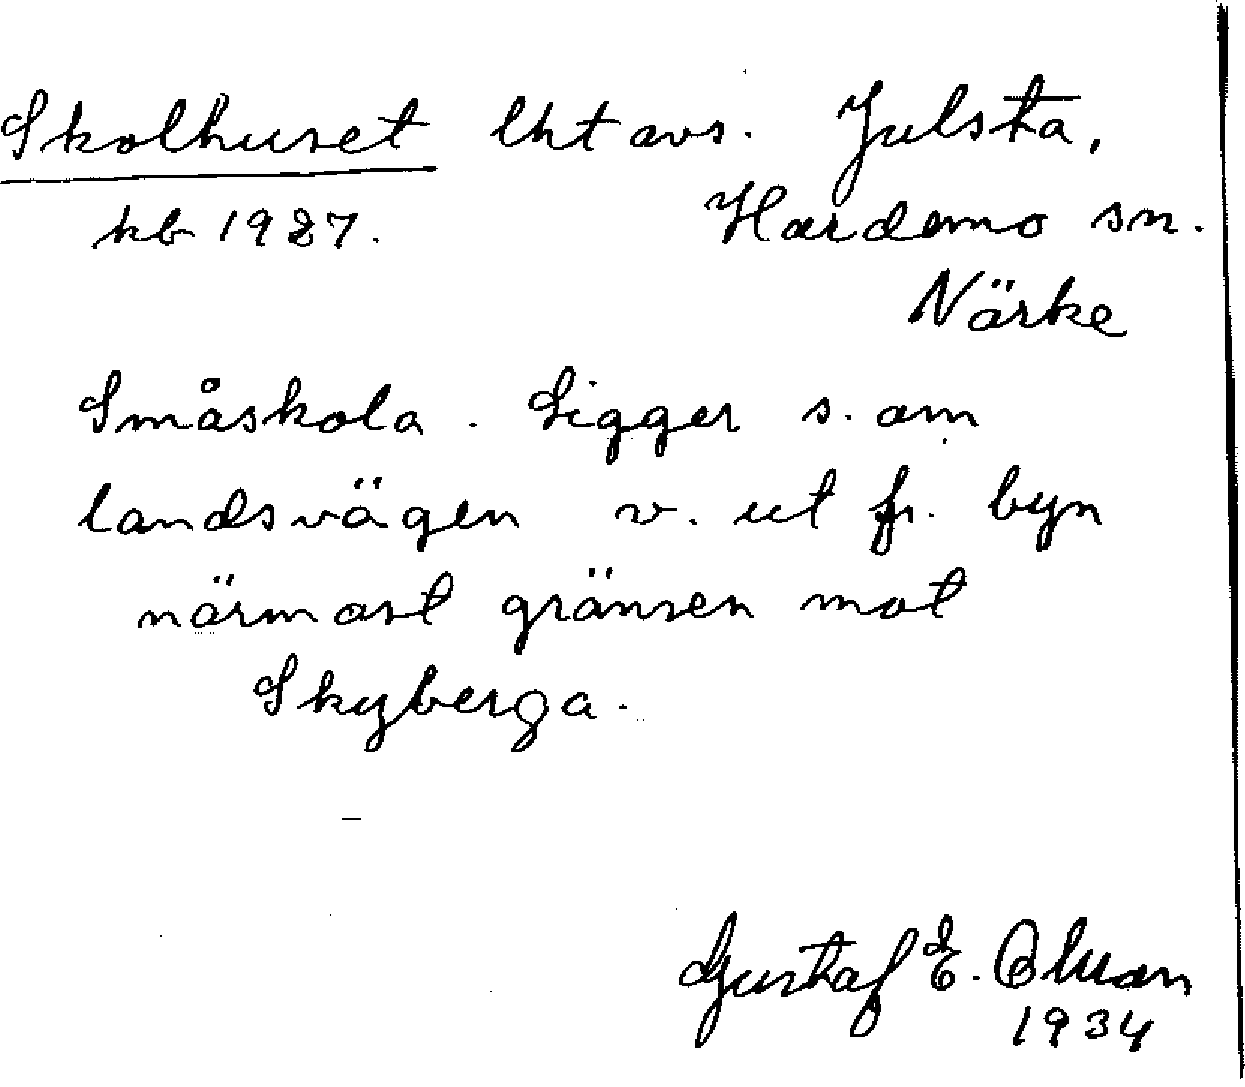 Skolhuset lht avs. Julsta,
kb 1927. Hardemo sn.
Närke
Småskola. Ligger s. om
landsvägen v. ut fr. byn
närmast gränsen mot
Skyberga.
Gustaf E. Olsson
1934